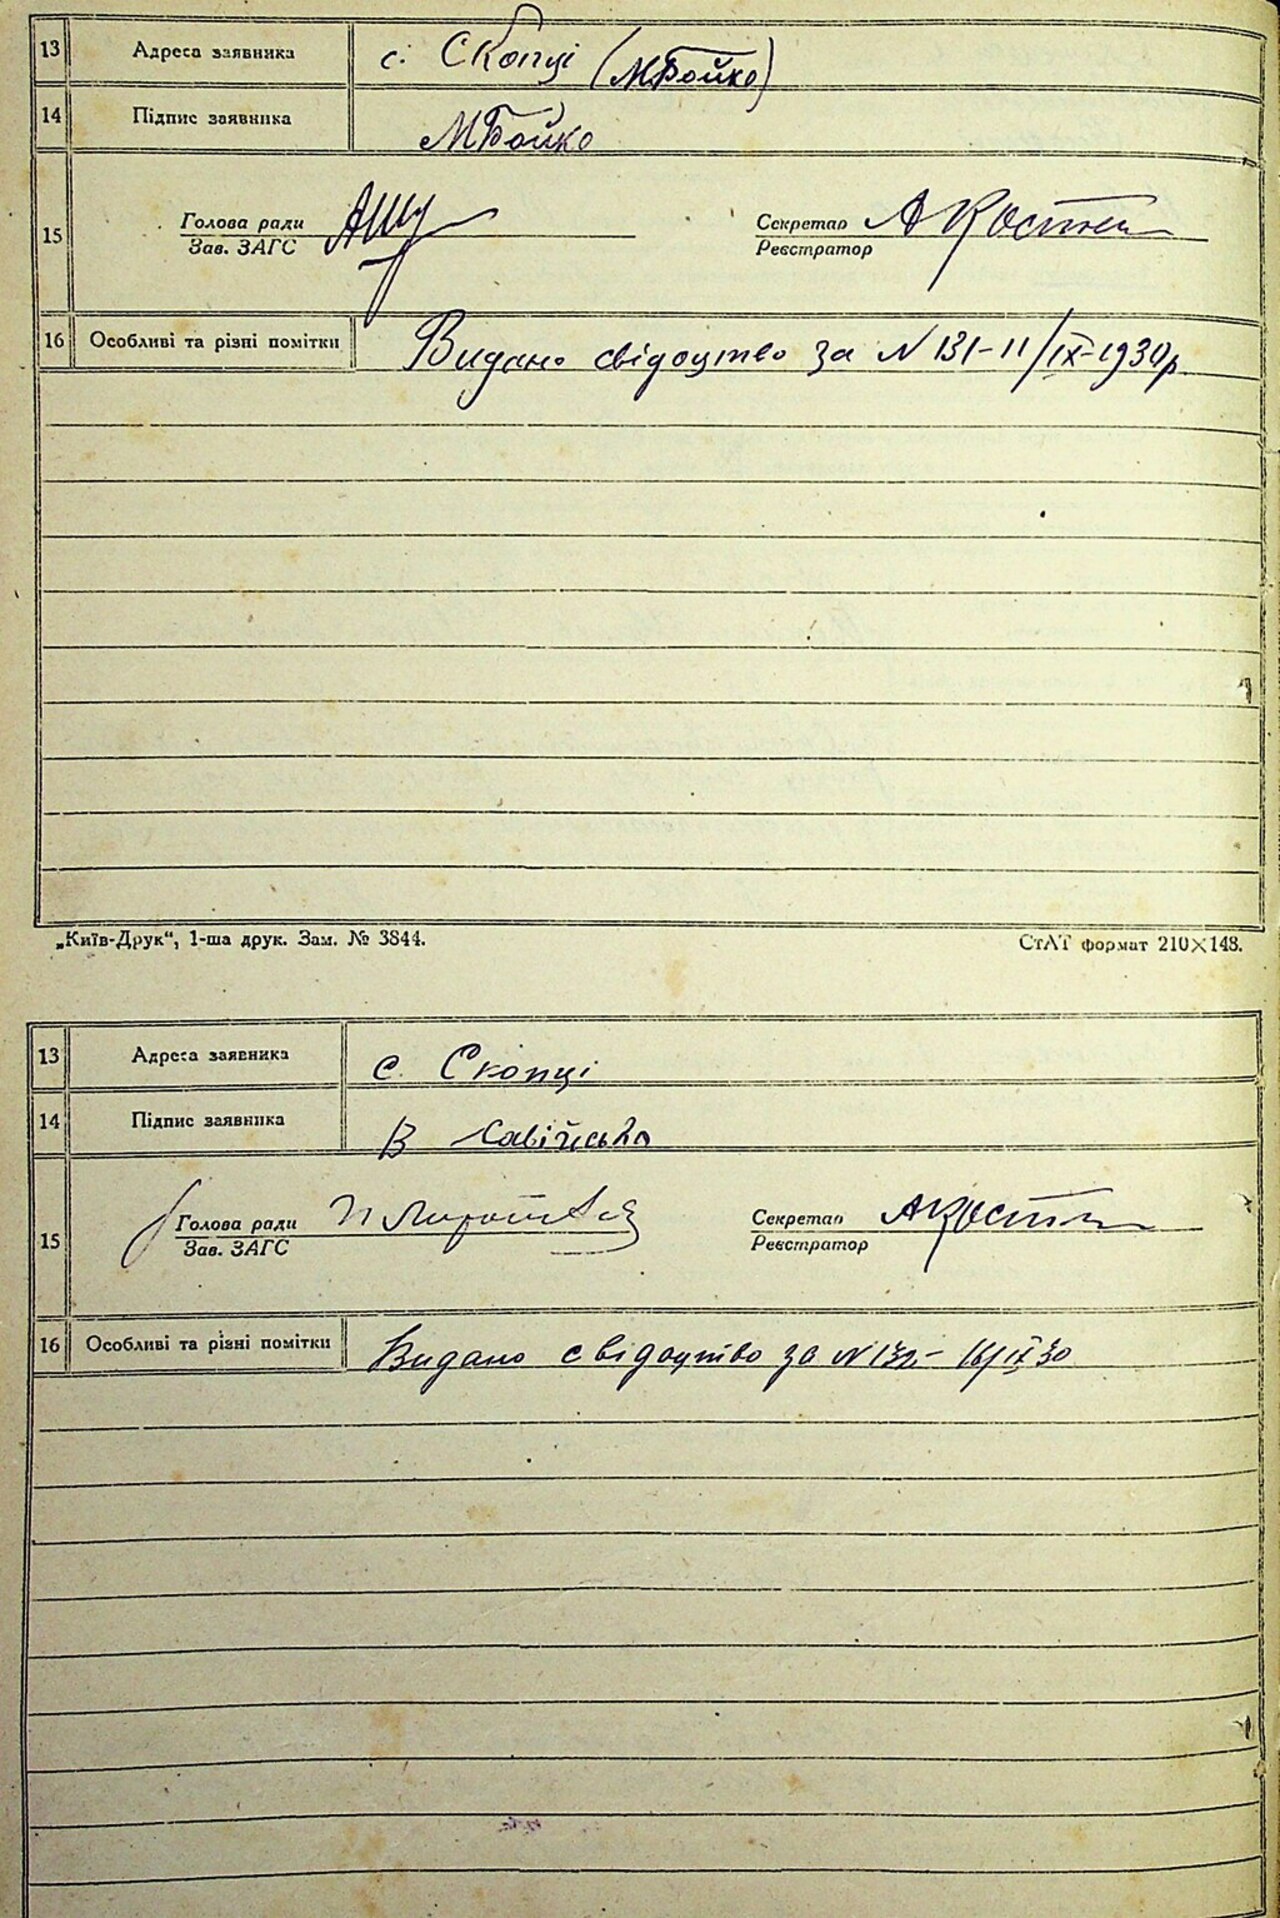 13 Адреса заявника с. Скопці (МБойко)
14 Підпис заявника МБойко
15 Голова ради Секретар А Кост
Зав. ЗАГС Реєстратор
16 Особливі та різні помітки Видано свідоцтво за N 131-11/IX-1930р
„Київ-Друк“, 1-ша друк. Зам. № 3844. СтАТ формат 210×148.
13 Адреса заявника с. Скопці
14 Підпис заявника В
15 Голова ради П Секретар АКост
Зав. ЗАГС Реєстратор
16 Особливі та різні помітки Видано свідоцтво за N 132- 16/IX 30